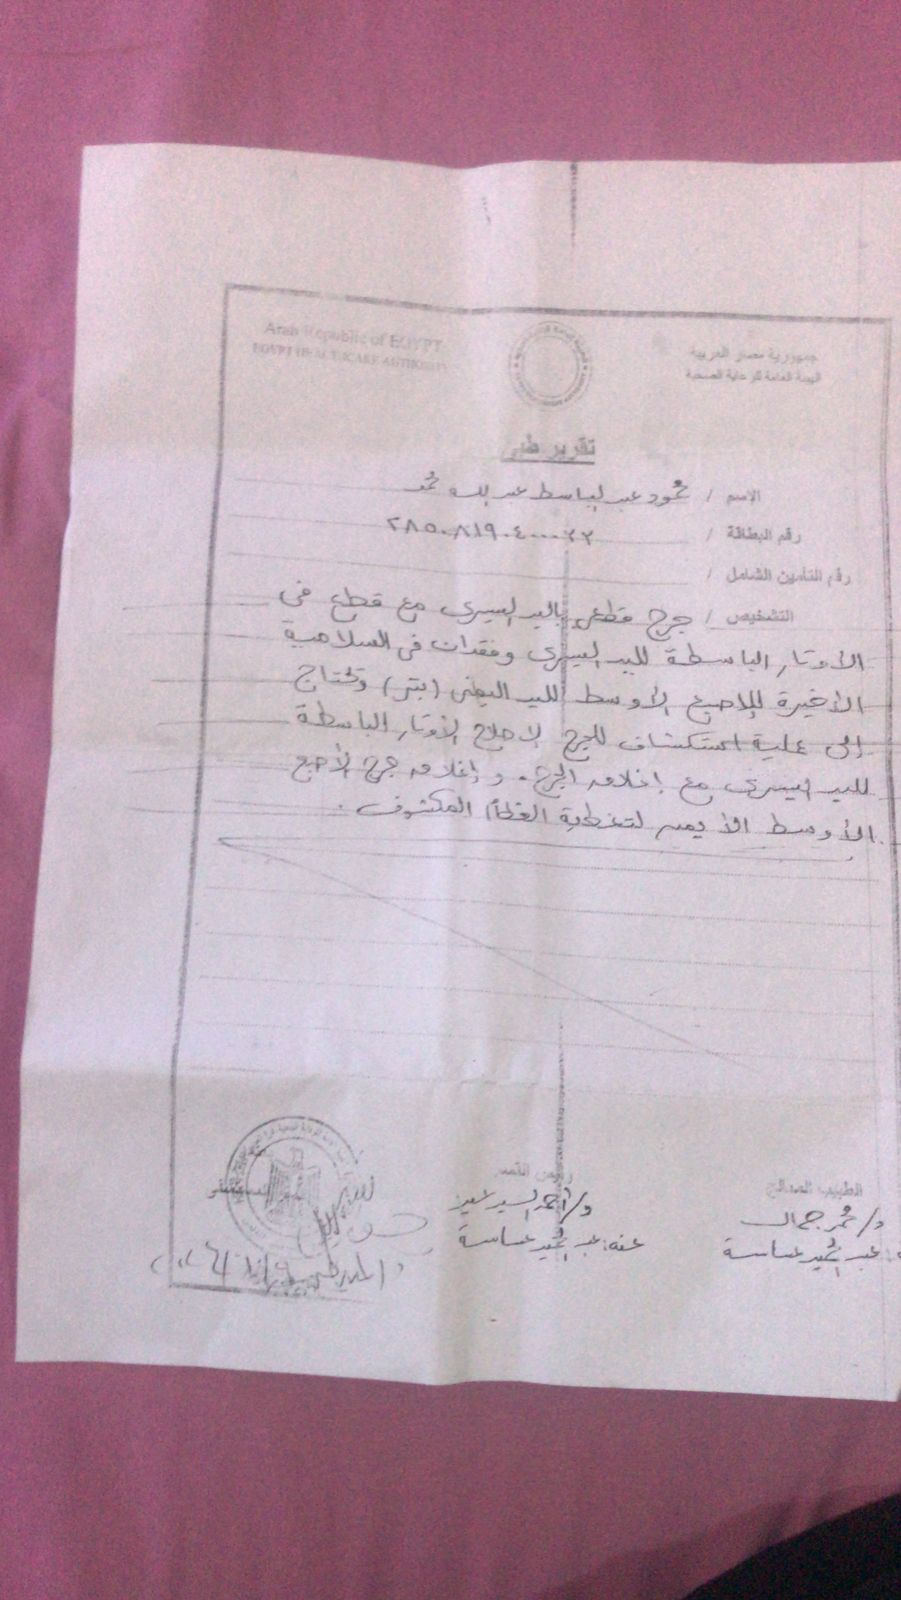 Arab Republic of EGYPT
EGYPT HEALTHCARE AUTHORITY
جمهورية مصر العربية
الهيئة العامة للرعاية الصحية
تقرير طبي
الاسم / محمود عبد الباسط عبد محمد
رقم البطاقة / ٢٨٥٠٨١٩٠٤٠٠٠٢٣
رقم التأمين الشامل /
التشخيص / جرح قطعى باليد اليسرى مع قطع فى
الأوتار الباسطة لليد اليسرى وفقدان فى السلامية
الأخيرة للاصبع الأوسط لليد اليمنى (بتر) وتحتاج
إلى عملية استكشاف للجرح لاصلاح الأوتار الباسطة
لليد اليسرى مع إغلاق الجرح. وإغلاق جرح الأصبع
الأوسط الأيمن لتغطية العظام المكشوف.
الطبيب المعالج
رئيس القسم
د/ عمر جمال
د/ أحمد السيد
عنه: عبد الحميد عساسة
عبد الحميد عساسة